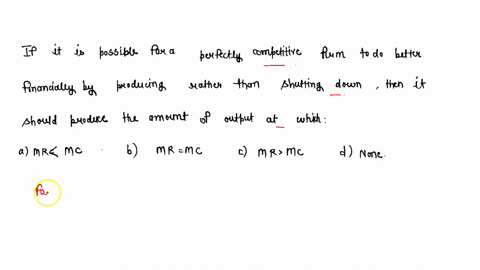 If it is possible for a perfectly competitive firm to do better
financially by producing rather than shutting down, then it
should produce the amount of output at which:
a) MR< MC b) MR = MC c) MR > MC d) None.
Fo